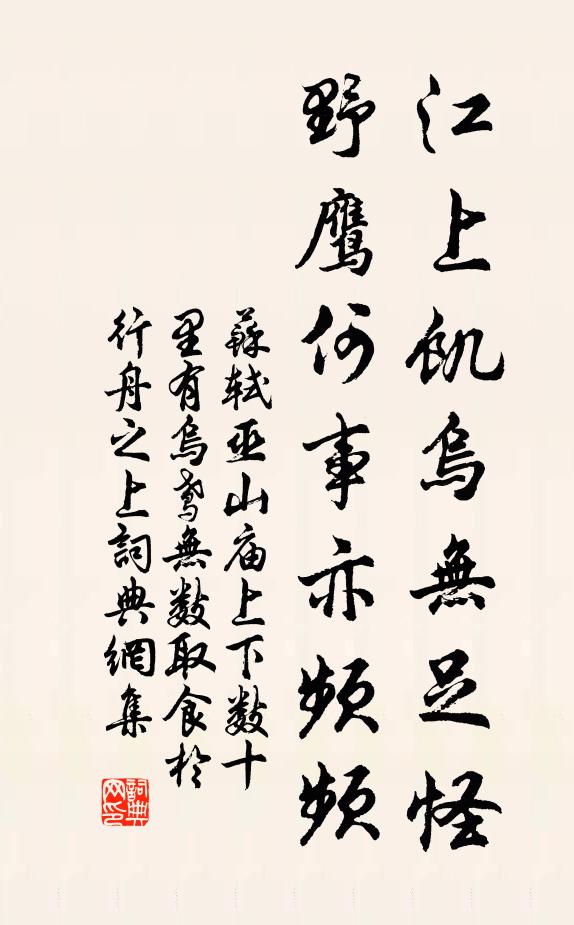 江上飢烏無足怪
野鷹何事亦頻頻
蘇軾巫山庙上下数十
里有烏鳶無数取食於
行舟之上詞典網集
詞典
网印